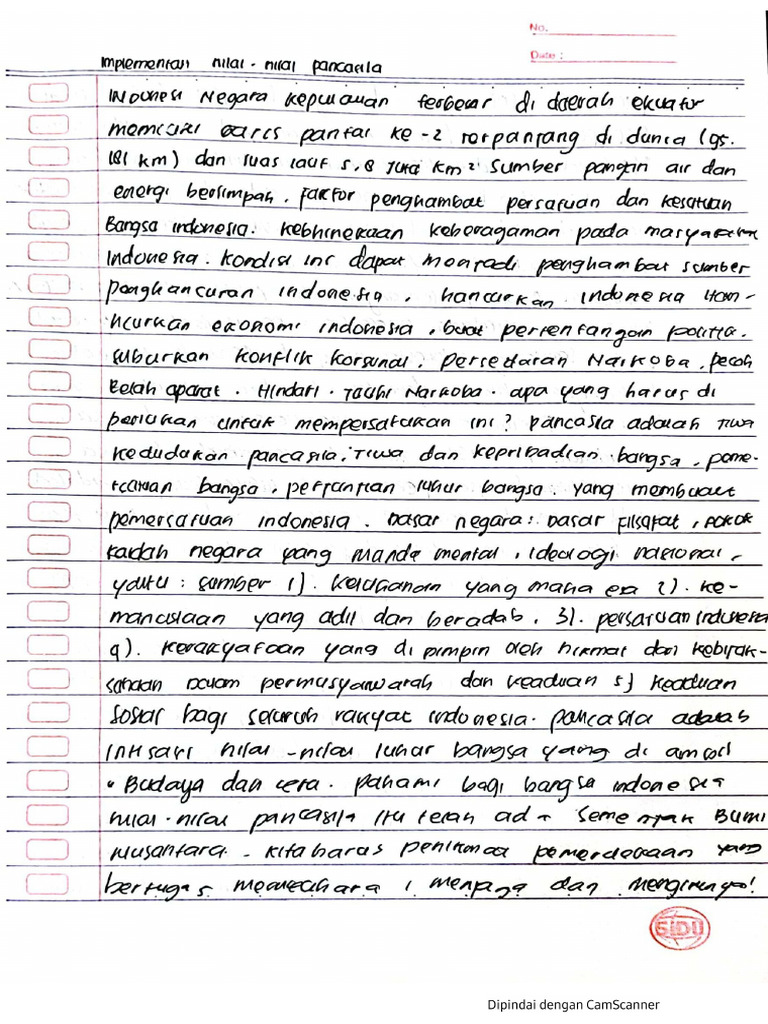 No.
Date :
Implementasi nilai - nilai pancasila
INDOnesi Negara kepulauan terbesar di daerah ekuator
memiliki garis pantai ke-2 terpanjang di dunia (95.
181 km) dan luas laut 5,8 juta km² sumber pangan air dan
energi berlimpah. faktor penghambat persatuan dan kesatuan
Bangsa indonesia: kebhinekaan keberagaman pada masyarakat
Indonesia. kondisi ini dapat menjadi penghambat sumber
penghancuran indonesia, hancurkan indonesia Han-
curkan ekonomi indonesia, buat pertentangan politik.
suburkan konflik komunal, persedaran Narkoba, pecah
Belah aparat. Hindari. Jauhi Narkoba. apa yang harus di
perlukan untuk mempersatukan ini? pancasila adalah jiwa
kedudukan pancasila: Jiwa dan kepribadian bangsa, peme-
bangsa, perjanjian luhur bangsa. yang membuat
pemersatuan indonesia. Dasar negara: Dasar filsafat, pokok
kaidah negara yang manda mental, ideologi nasional,
yaitu: sumber 1). ketuhanan yang maha esa 2). ke-
manusiaan yang adil dan beradab, 3). persatuan indonesia
4). kerakyataan yang di pimpin oleh hikmat dan kebijak-
sanaan dalam permusyawarah dan keaduan 5) keaduan
Sosial bagi seluruh rakyat indonesia. pancasila adalah
intisari nilai-nilai luhur bangsa yang di ambil
• Budaya dan cera. pahami bagi bangsa indonesia
nilai-nilai pancasila itu telah ada semenjak Bumi
nusantara. kita harus penikmat pemerdekaan yang
bertugas memelihara, menjaga dan mengisinya!
SiDU
Dipindai dengan CamScanner